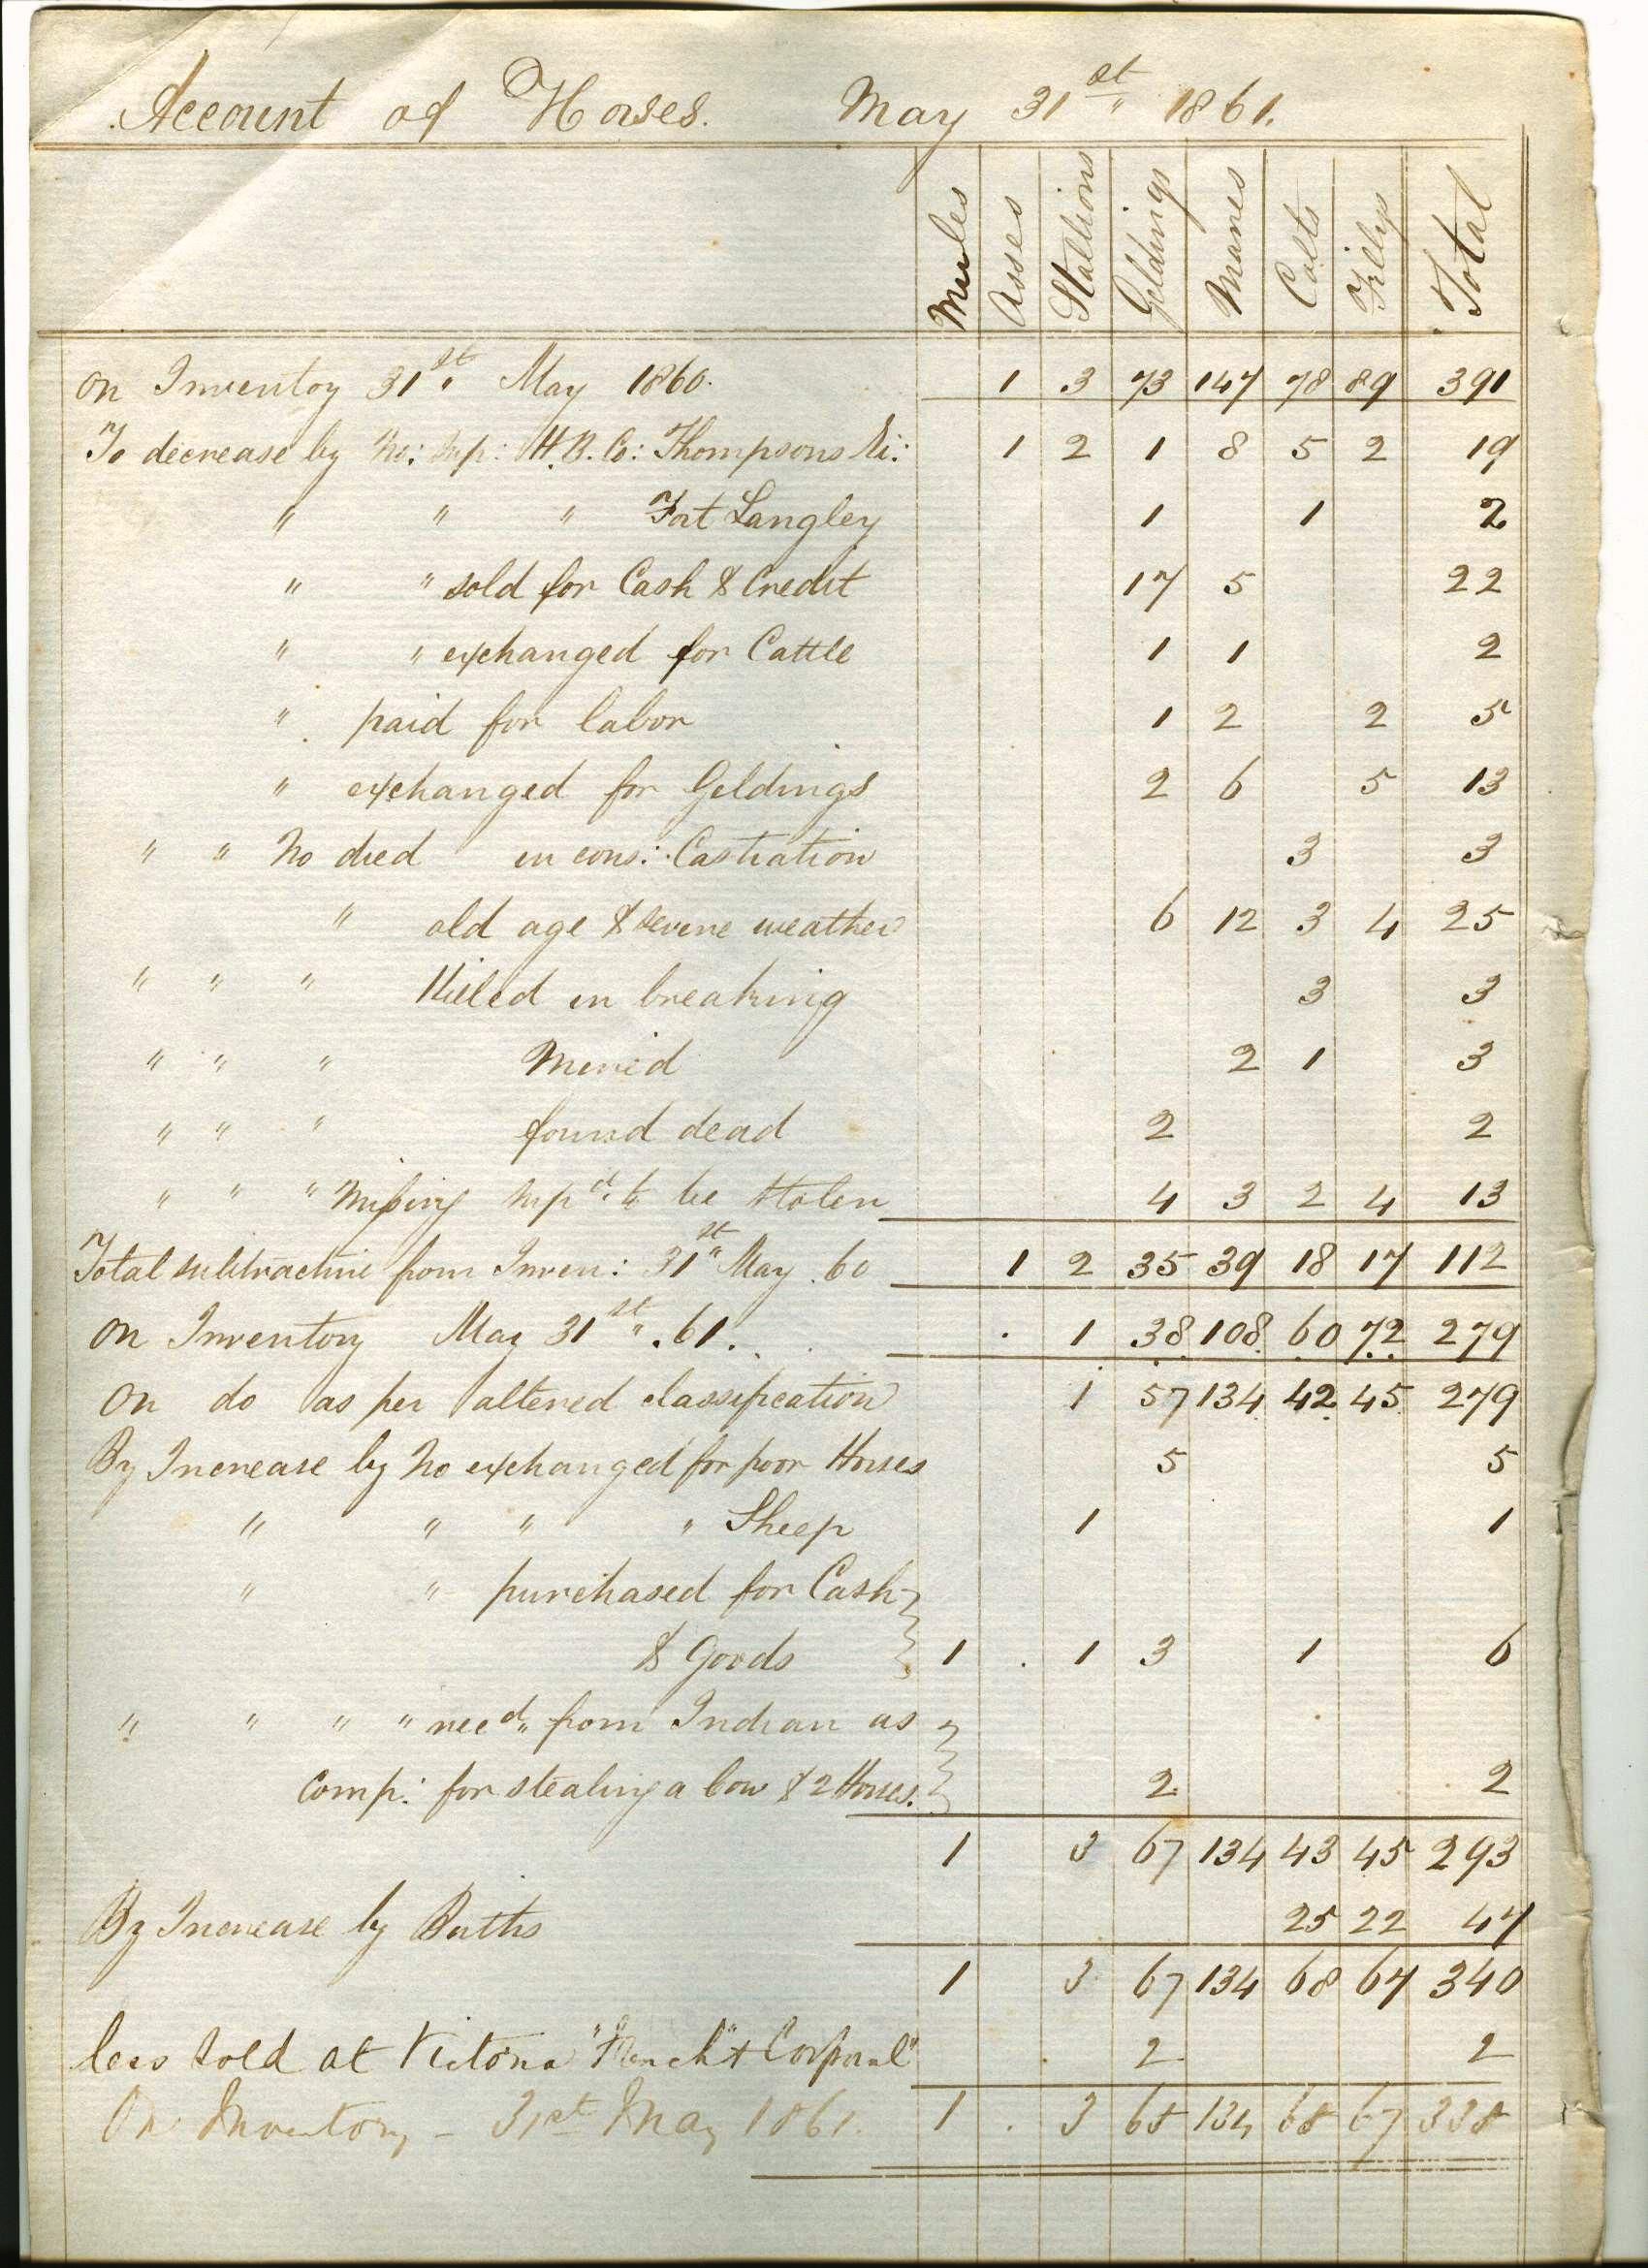 Account of Horses. May 31st 1861.
Mules Asses Stallions Geldings Mares Colts Fillys Total
On Inventoy 31st May 1860. 1 3 73 147 78 89 391
To decrease by No: Sup: H.B.Co: Thompsons Ri: 1 2 1 8 5 2 19
" " " Fort Langley 1 1 2
" " sold for Cash & Credit 17 5 22
" " exchanged for Cattle 1 1 2
" paid for labor 1 2 2 5
" exchanged for Geldings 2 6 5 13
" " No died in cons: Castration 3 3
" old age & severe weather 6 12 3 4 25
" " " Killed in breaking 3 3
" " " Mired 2 1 3
" " " found dead 2 2
" " " Missing supd. to be stolen 4 3 2 4 13
Total subtractive from Inven: 31st May .60 1 2 35 39 18 17 112
On Inventory May 31st .61. 1 38 108 60 72 279
On do as per altered classification 1 57 134 42 45 279
By Increase by No exchanged for poor Horses 5 5
" " " " Sheep 1 1
" " purchased for Cash
& Goods 1 . 1 3 1 6
" " " " recd from Indian as
Comp: for stealing a Cow & 2 Horses. 2 2
1 3 67 134 43 45 293
By Increase by Births 25 22 47
1 3 67 134 68 67 340
less sold at Victoria "French" & Corporal" 2 2
On Inventory - 31st May 1861. 1 . 3 65 134 68 67 338